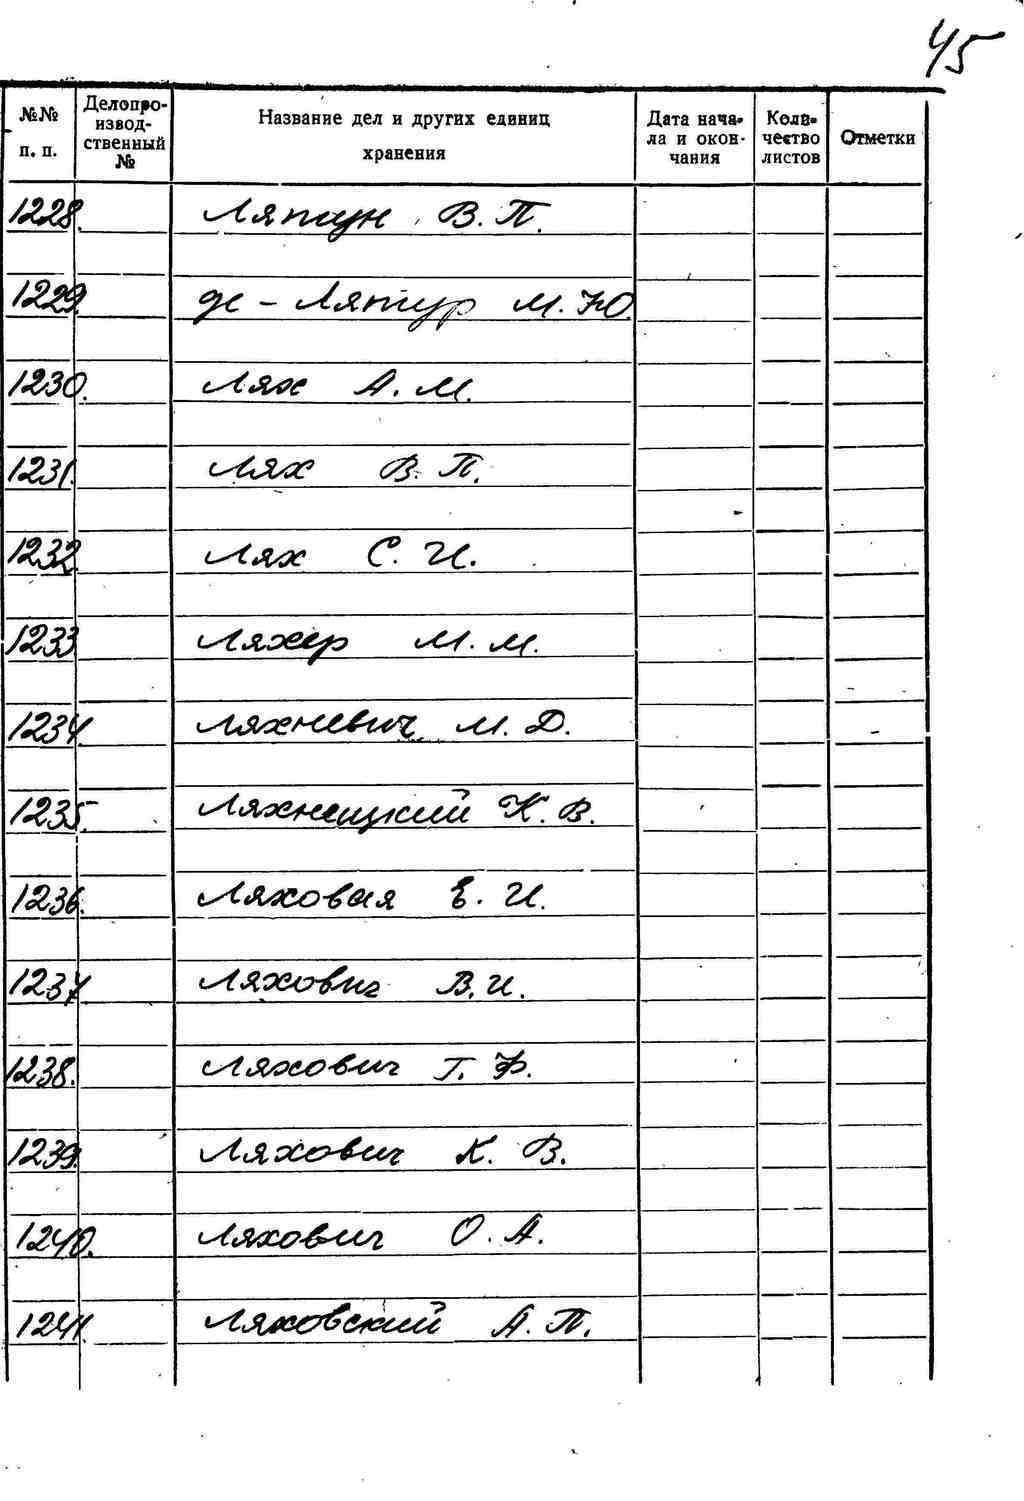 45
№№ п. п. Делопро-извод-ственный № Название дел и других единиц хранения Дата нача-ла и окон-чания Коли-чество листов Отметки
1228. Ляпгун В. П.
1229. де - Лятур М. Ю.
1230. Лях А. М.
1231. Лях В. П.
1232. Лях С. И.
1233. Ляхер М. М.
1234. Ляхневич М. Д.
1235. Ляхницкий К. В.
1236. Ляховая Е. И.
1237. Ляхович В. И.
1238. Ляхович Г. Ф.
1239. Ляхович К. В.
1240. Ляхович О. А.
1241. Ляховский А. П.